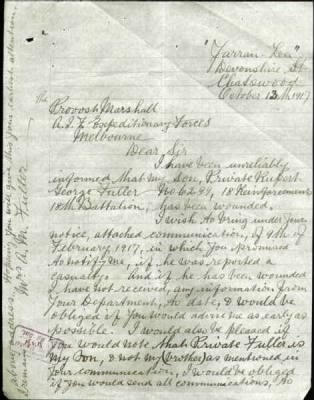 "Tarran-Lea"
Devonshire St
Chatswood
October 13th 1917
The
Provost Marshall
A.I.F. Expeditionary Forces
Melbourne
Dear Sir
I have been unreliably
informed that my son, Private Rupert
George Fuller No 6299, 18 Reinforcements
18th Battalion, has been wounded.
I wish to bring under your
notice, attached communication, of 9th of
February 1917, in which you promised
to notify me, if he was reported a
casualty. And if he has been wounded
I have not received, any information from
Your Department, to date, & would be
obliged if you would advise me as early as
possible. I would also be pleased if
you would note that Private Fuller is
my Son, & not my (brother) as mentioned in
your communication, I would be obliged
if you would send all communications, to
above address. Hoping you will give this your earliest attention.
I remain
Mrs A. M. Fuller